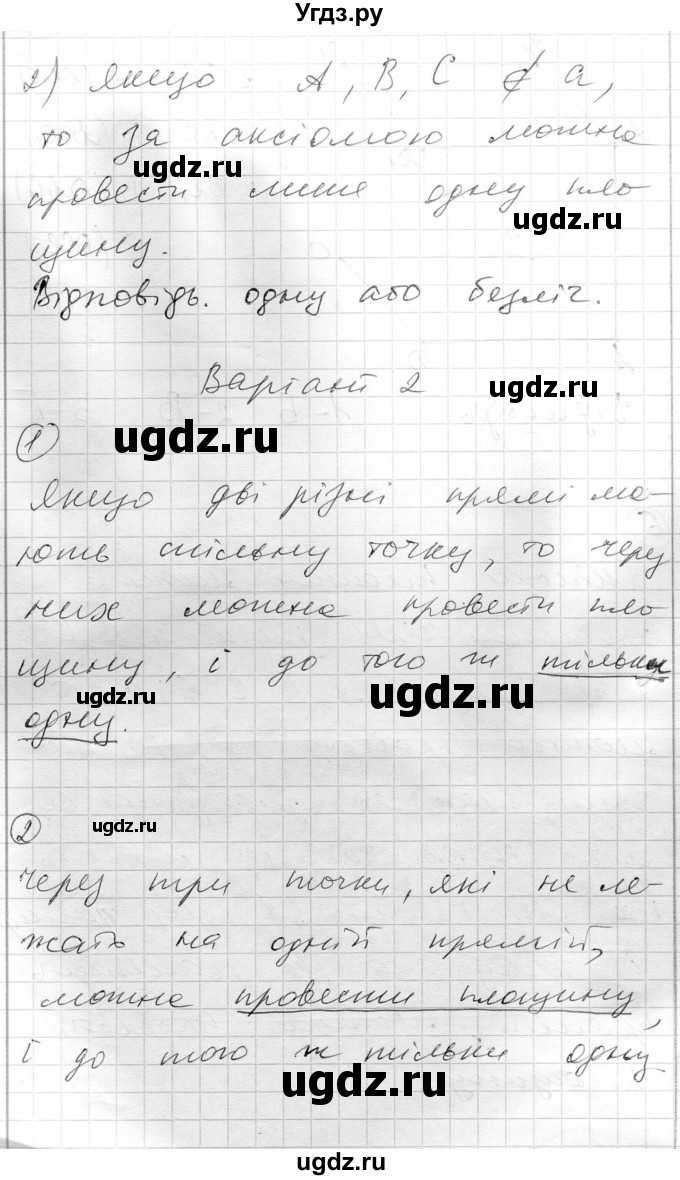 Угдз.ру
2) Якщо A, B, C ∉ a,
то за аксіомою можна
ugdz.ru
провести лише одну пло
ugdz.ru
щину.
Відповідь. одну або безліч.
Варіант 2
ugdz.ru
1
ugdz.ru
Якщо дві різні прямі ма-
ють спільну точку, то через
них можна провести пло
щину, і до того ж тільки
ugdz.ru
ugdz.ru
одну.
2
ugdz.ru
Через три точки, які не ле-
жать на одній прямій,
можна провести площину,
і до того ж тільки одну
ugdz.ru
ugdz.ru